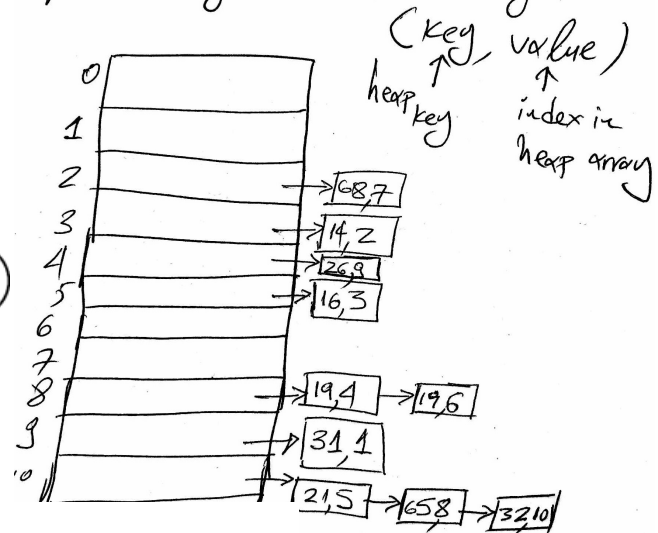 (key, value)
heap key
index in
heap array
0
1
2 → 68,7
3 → 14,2
4 → 26,9
5 → 16,3
6
7
8 → 19,4 → 19,6
9 → 31,1
10 → 21,5 → 65,8 → 32,10